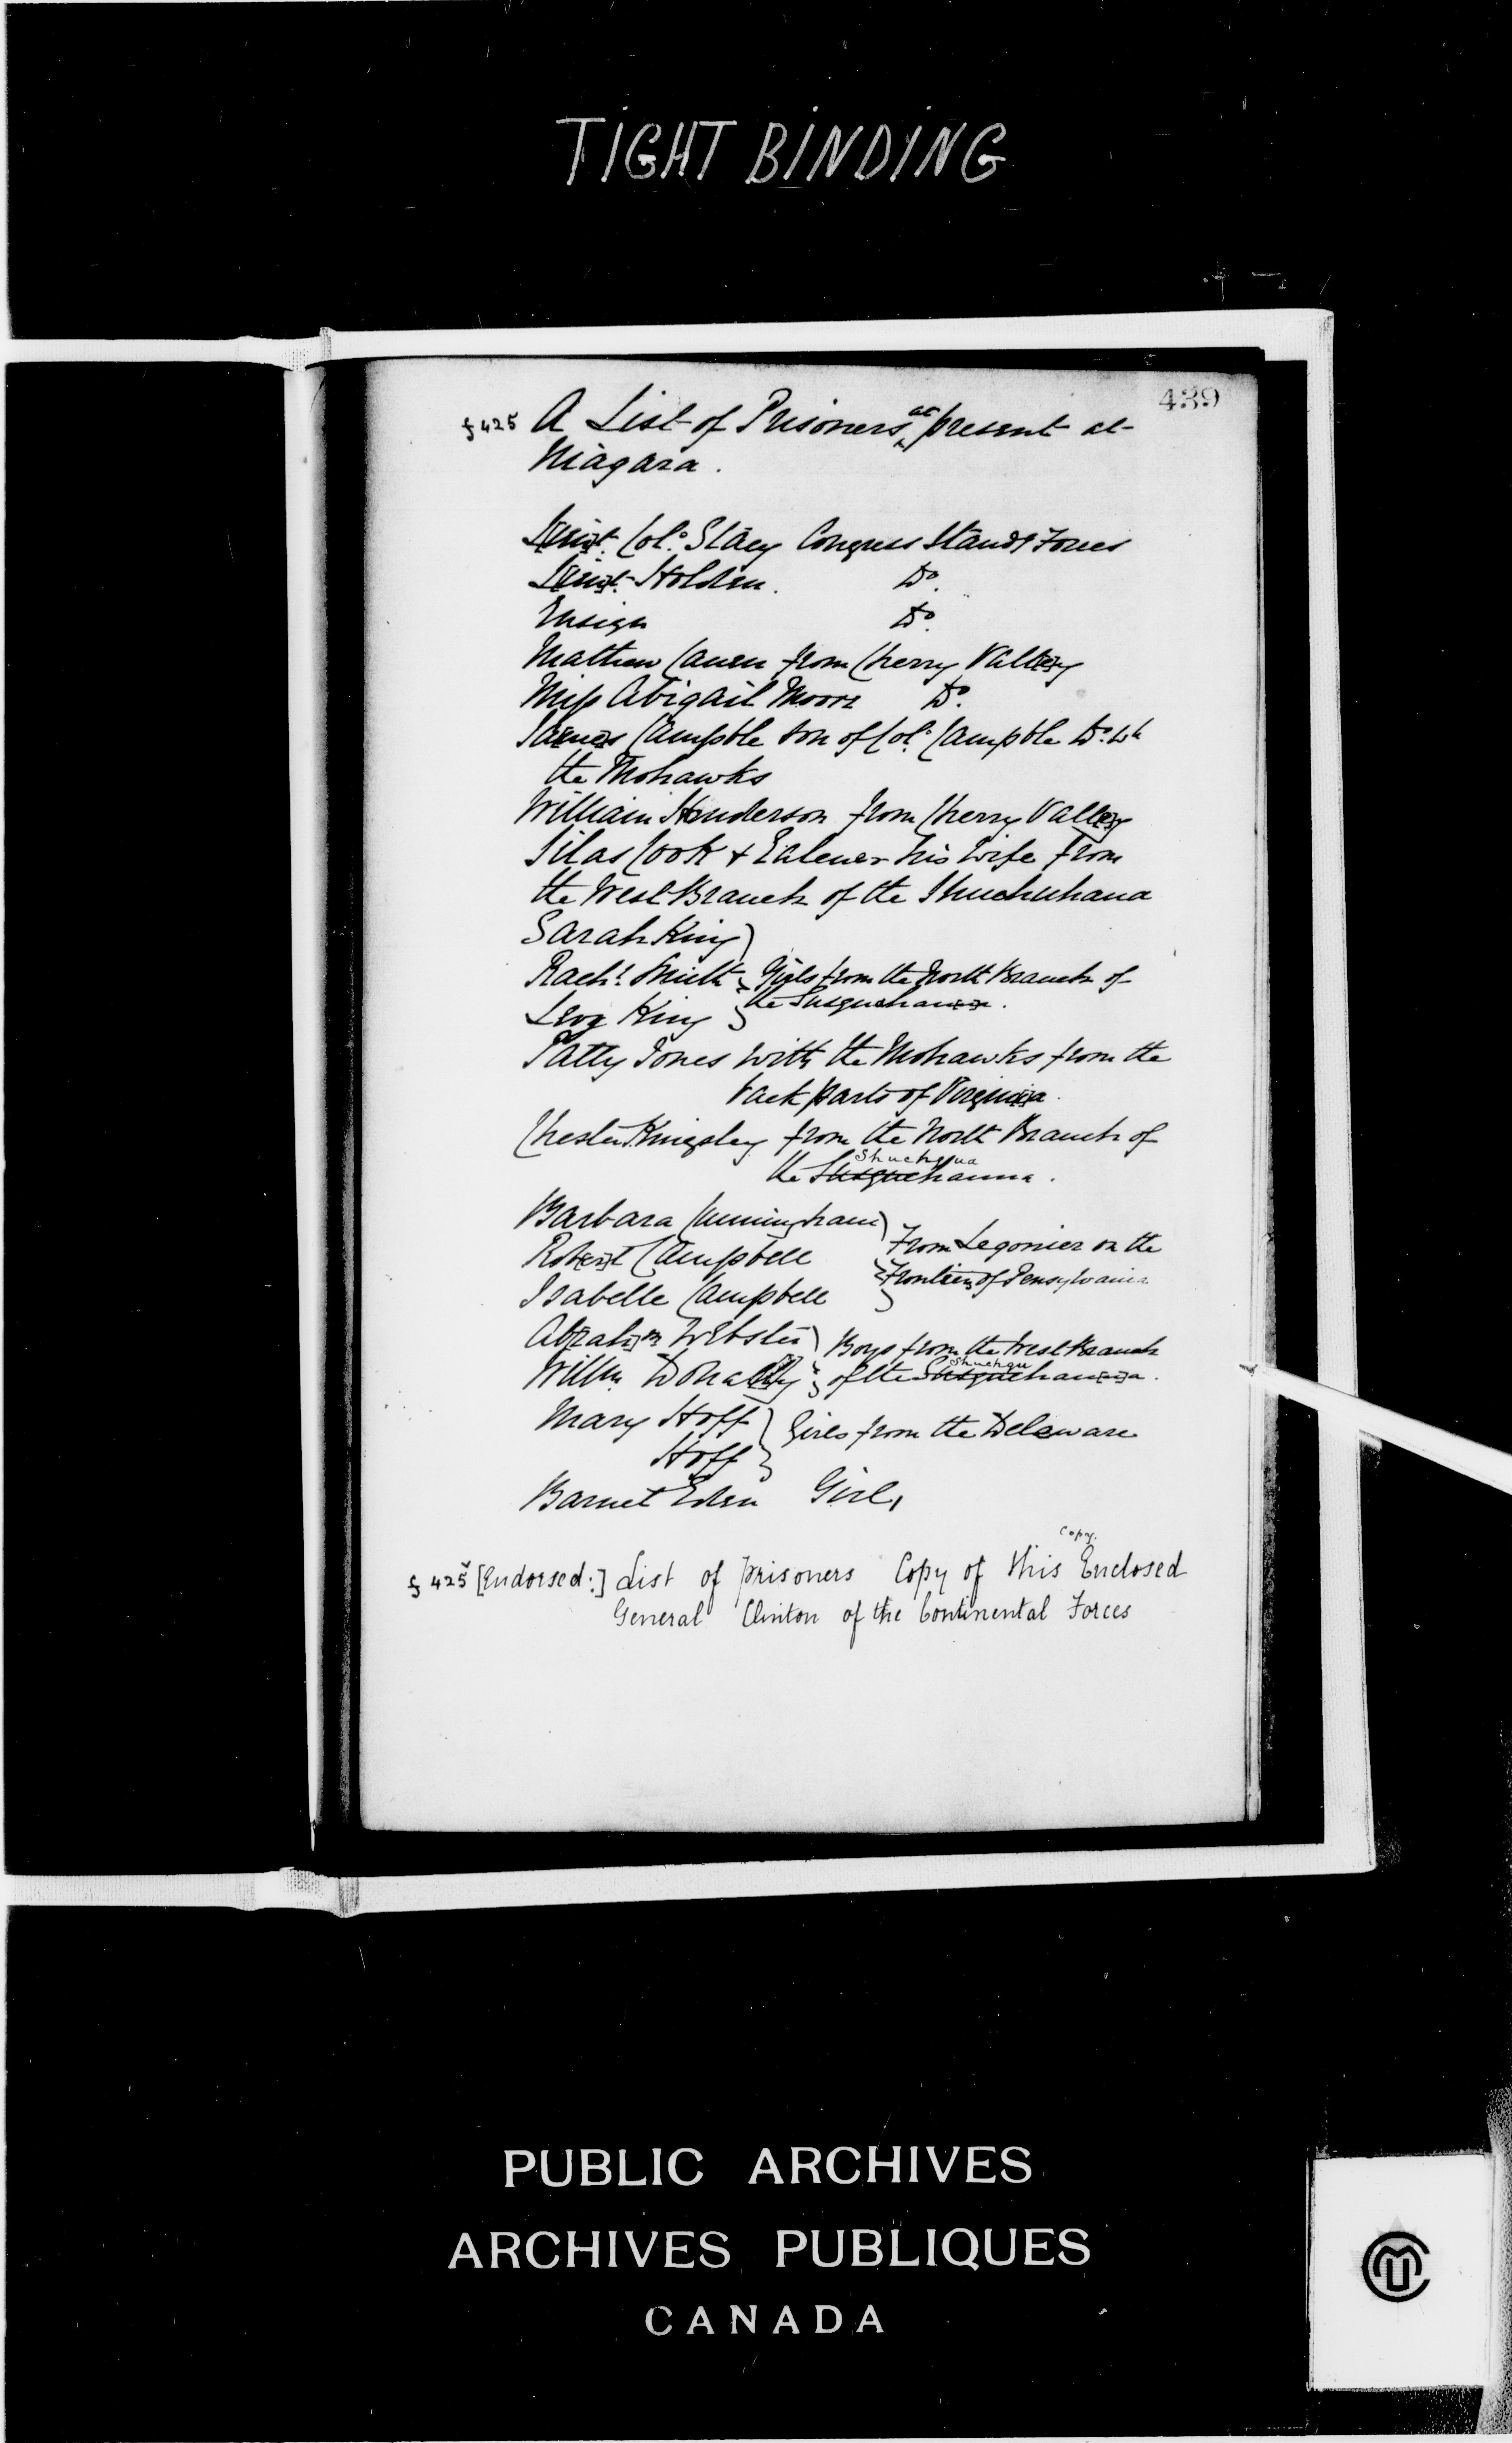 TIGHT BINDING
439
f 425 A List of Prisoners at present at
Niagara.
Lieut. Col. Stacy Congress Stands Forces
Lieut. Holden. Do.
Ensign Do.
Mathew Cannen from Cherry Valley
Miss Abigail Moore Do.
James Campble son of Col. Campble Do. Wh
the Mohawks
William Henderson from Cherry Valley
Silas Cook & Ealener his Wife from
the West Branch of the Shuchuhana
Sarah King
Rachl. Smith Girls from the North Branch of
the Susquehanna.
Levy King
Patty Jones with the Mohawks from the
back parts of Virginia.
Chester Kingsley from the North Branch of
Shuchqua
the Susquehanna.
Barbara Cunningham
Robert Campbell From Legonier on the
Frontiers of Pensylvania
Isabelle Campbell
Abraham Webster Boys from the West Branch
Willm. Donaldy of the Shuchqu Susquehanna.
Mary Hoff Girls from the Delaware
Hoff
Barnet Eden Girl,
Copy.
f 425 [Endorsed:] List of prisoners Copy of this Enclosed
General Clinton of the Continental Forces
PUBLIC ARCHIVES
ARCHIVES PUBLIQUES
CANADA